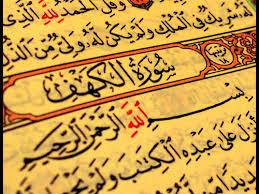 وَقُلِ الْحَمْدُ لِلَّهِ الَّذِي
لَّهُ شَرِيكٌ فِي الْمُلْكِ وَلَمْ يَكُن لَّهُ وَلِيٌّ مِّنَ الذُّلِّ
سُورَةُ الْكَهْفِ
بِسْمِ اللَّهِ الرَّحْمَٰنِ الرَّحِيمِ
أَنزَلَ عَلَىٰ عَبْدِهِ الْكِتَٰبَ وَلَمْ